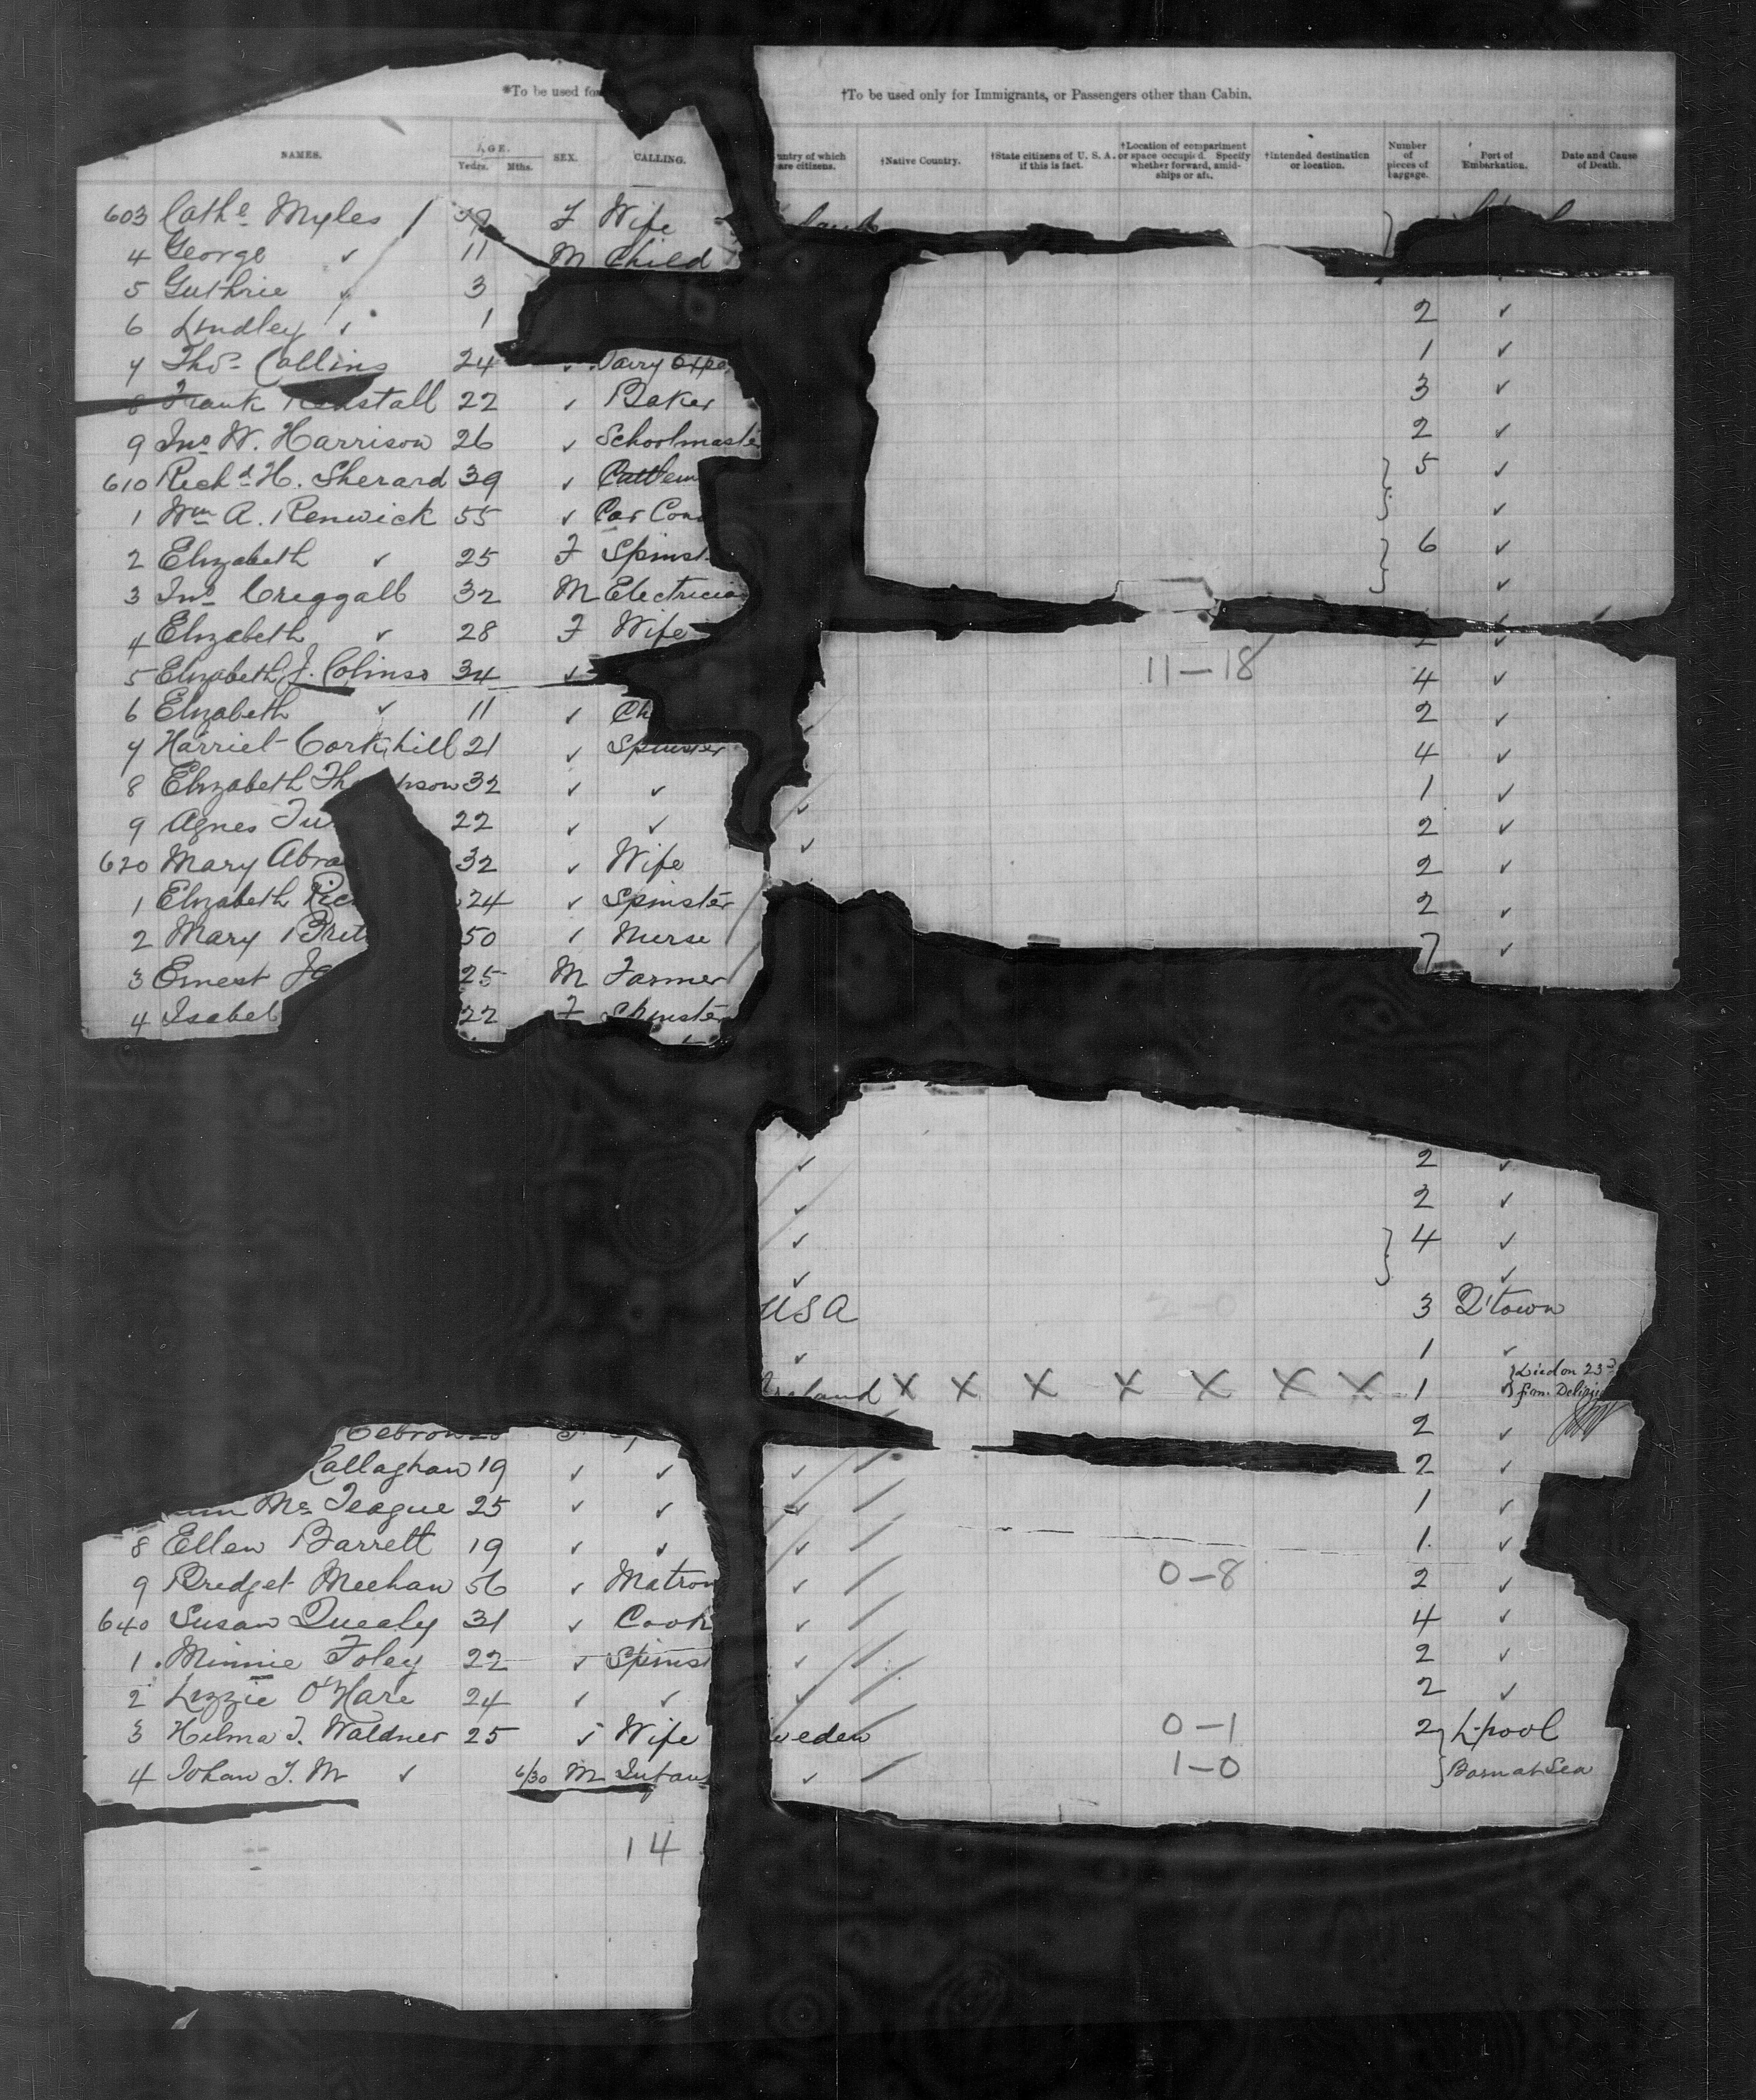 *To be used for
†To be used only for Immigrants, or Passengers other than Cabin.
NAMES. AGE. Years. Mths. SEX. CALLING. untry of which are citizens. †Native Country. †State citizens of U. S. A. if this is fact. †Location of compartment or space occupied. Specify whether forward, amidships or aft. †Intended destination or location. Number of pieces of baggage. Port of Embarkation. Date and Cause of Death.
603 Cathe Myles F Wife
4 George ✓ 11 M Child
5 Guthrie ✓ 3
6 Lindley ✓ 1 2 ✓
7 Thos Collins 24 ✓ 1 ✓
8 Frank 22 ✓ Baker 3 ✓
9 Jno W. Harrison 26 ✓ Schoolmaste 2 ✓
610 Richd H. Sherard 39 ✓ 5 ✓
1 Wm A. Renwick 55 ✓ Car Con ✓
2 Elizabeth ✓ 25 F Spinst 6 ✓
3 Jno Creggall 32 M Electricia ✓
4 Elizabeth ✓ 28 F Wife ✓
5 Elizabeth J. Colinso 34 ✓ 11-18 4 ✓
6 Elizabeth ✓ 11 ✓ Ch 2 ✓
7 Harriet Corkhill 21 ✓ Spinster 4 ✓
8 Elizabeth Th pson 32 ✓ ✓ 1 ✓
9 Agnes Tu 22 ✓ ✓ 2 ✓
620 Mary Abra 32 ✓ Wife 2 ✓
1 Elizabeth Ric 24 ✓ Spinster 2 ✓
2 Mary Bret 50 ✓ Nurse ✓
3 Ernest Ja 25 M Farmer
4 Isabel 22 F Spinster
✓ 2 ✓
✓ 2 ✓
✓ 4 ✓
✓ ✓
USA 3 Q'town
✓ 1 ✓
Ireland X X X X X X X 1 ✓ Died on 23rd from
2 ✓
Callaghan 19 ✓ ✓ ✓ 2 ✓
Mc Teague 25 ✓ ✓ ✓ 1 ✓
8 Ellen Barrett 19 ✓ ✓ ✓ 1 ✓
9 Bridget Meehan 56 ✓ Matron ✓ 0-8 2 ✓
640 Susan Quealy 31 ✓ Cook ✓ 4 ✓
1 Minnie Foley 22 ✓ Spinst ✓ 2 ✓
2 Lizzie O'Hare 24 ✓ ✓ ✓ 2 ✓
3 Hilma J. Waldner 25 ✓ Wife weden 0-1 2 L'pool
4 Johan J. M ✓ 6/30 M Infant ✓ 1-0 Born at Sea
14